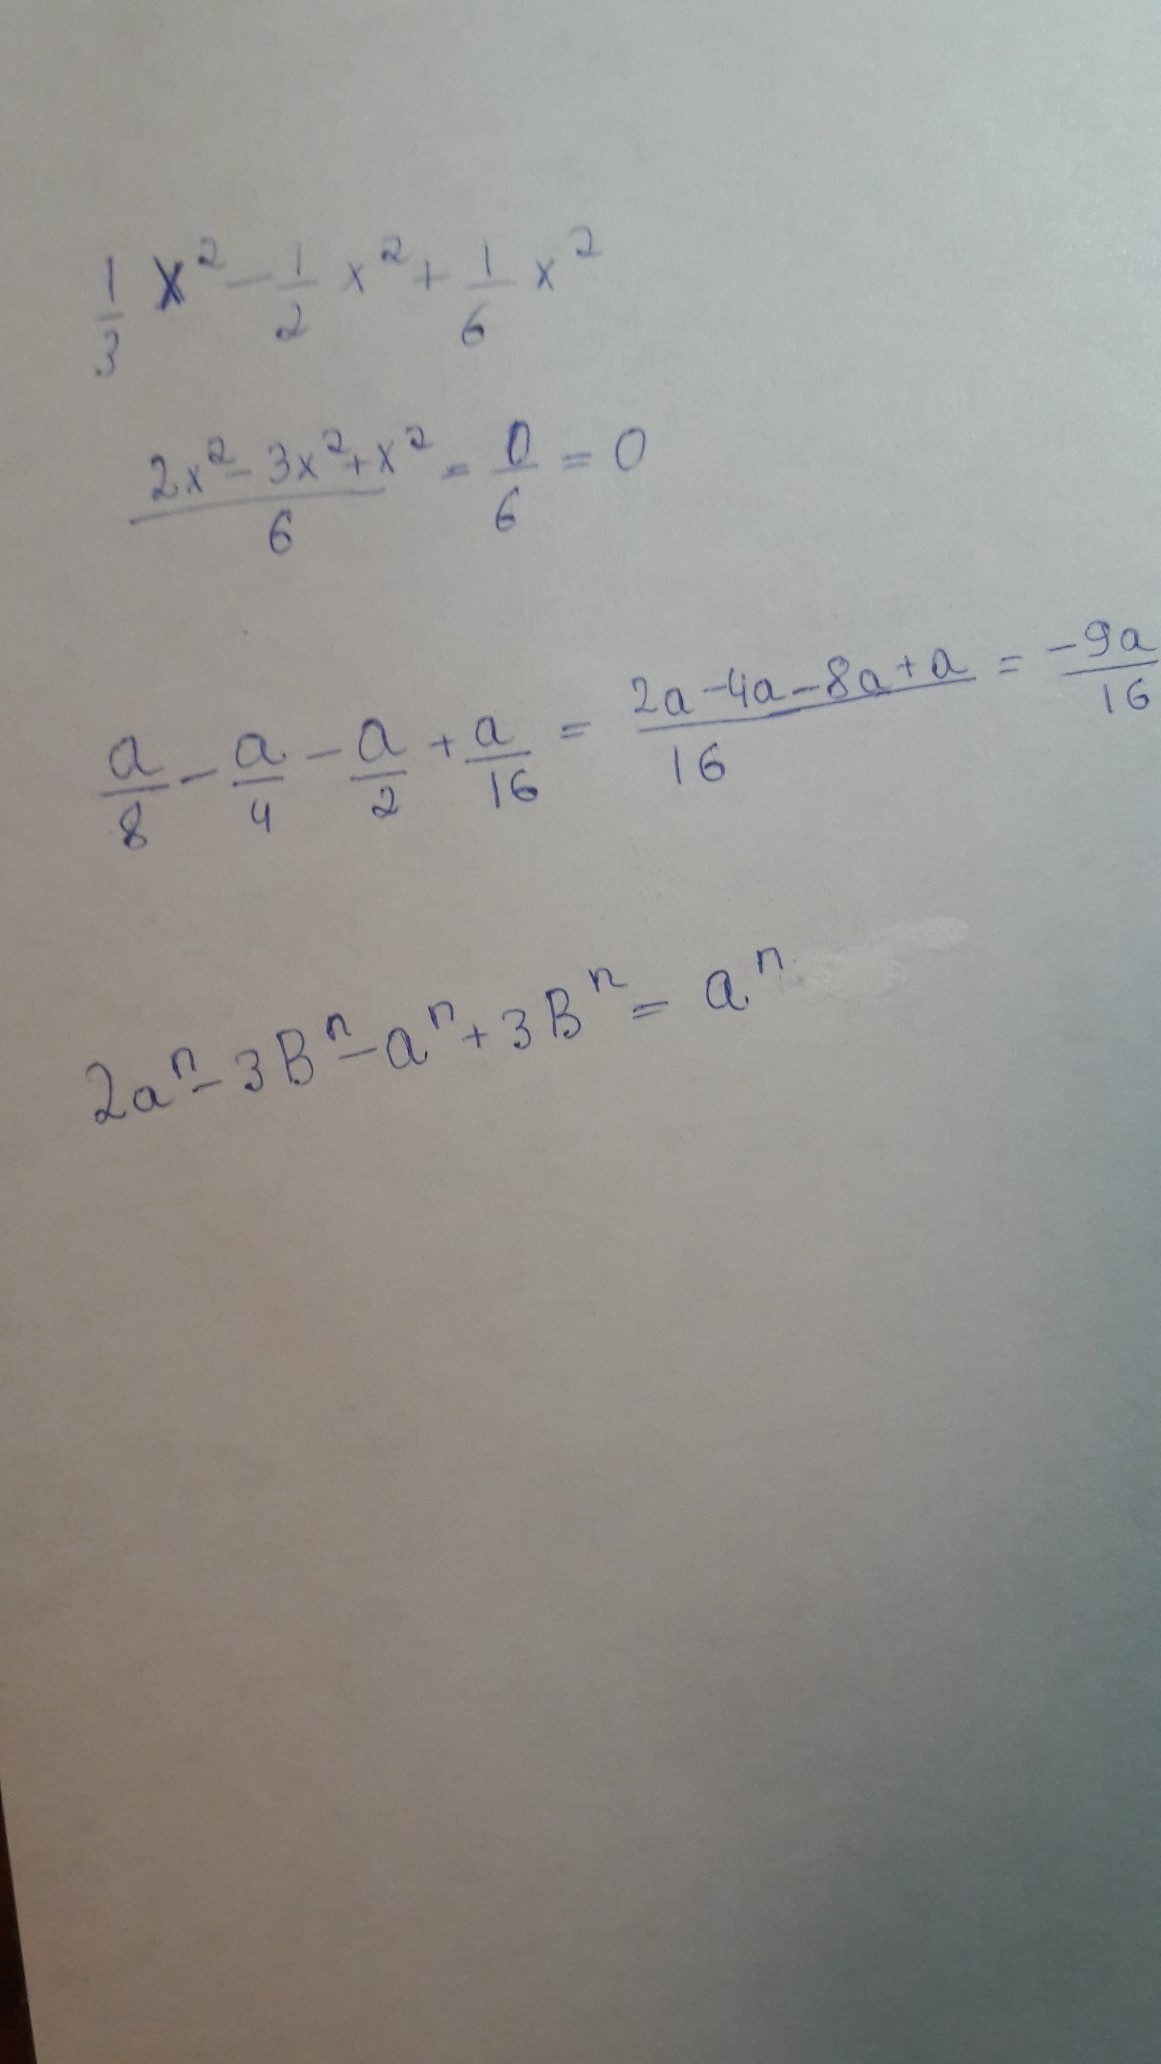 1/3 x² - 1/2 x² + 1/6 x²
(2x² - 3x² + x²)/6 = 0/6 = 0
a/8 - a/4 - a/2 + a/16 = (2a - 4a - 8a + a)/16 = -9a/16
2aⁿ - 3Bⁿ - aⁿ + 3Bⁿ = aⁿ